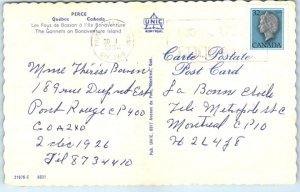 PERCE
Québec Canada
Les Fous de Bassan à l'Île Bonaventure
The Gannets on Bonaventure Island
UNIC
MONTREAL
32
CANADA
Carte Postale
Post Card
Mme Thérèse
189 rue Dufresne Est
Pont Rouge CP 400
G0A2X0
2 dec 1926
Tél 8734410
La Bonne Etoile
Tele Metropole
Montreal CP10
H2L4J8
21876-E